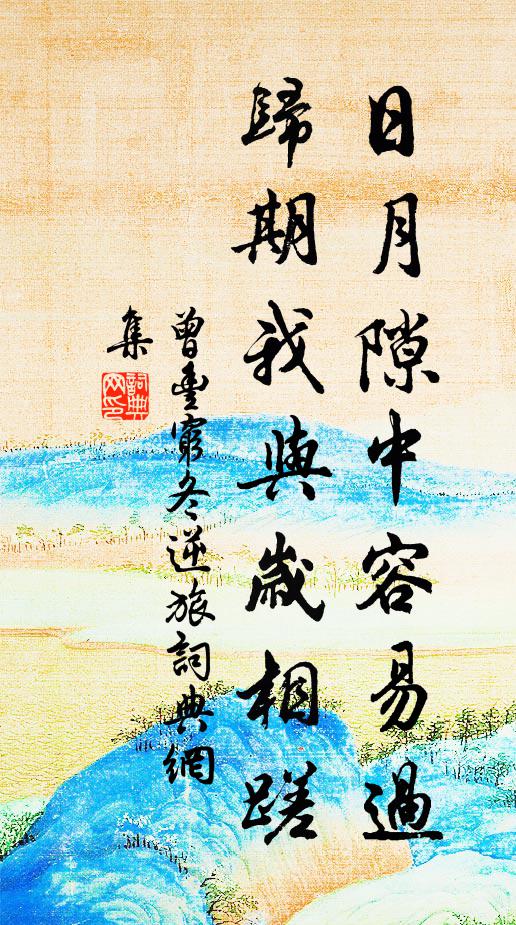 日月隙中容易過
歸期我與歲相蹉
曾豊窮冬逆旅詞典網
集
詞典
网印